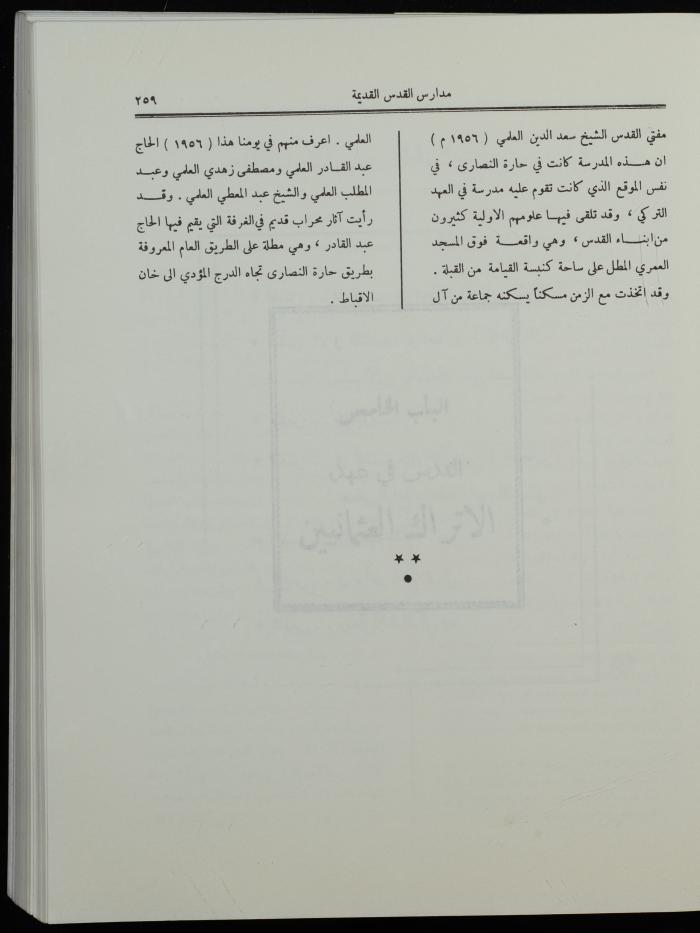 مدارس القدس القديمة
٢٥٩
مفتي القدس الشيخ سعد الدين العلمي ( ١٩٥٦ م )
ان هـذه المدرسة كانت في حارة النصارى ، في
نفس الموقع الذي كانت تقوم عليه مدرسة في العهد
التركي ، وقد تلقى فيها علومهم الاولية كثيرون
من ابناء القدس ، وهي واقعة فوق المسجد
العمري المطل على ساحة كنيسة القيامة من القبلة .
وقد اتخذت مع الزمن مسكناً يسكنه جماعة من آل
العلمي . اعرف منهم في يومنا هذا ( ١٩٥٦ ) الحاج
عبد القادر العلمي ومصطفى زهدي العلمي وعبد
المطلب العلمي والشيخ عبد المعطي العلمي . وقد
رأيت آثار محراب قديم في الغرفة التي يقيم فيها الحاج
عبد القادر ، وهي مطلة على الطريق العام المعروفة
بطريق حارة النصارى تجاه الدرج المؤدي الى خان
الاقباط .
الباب الخامس
القدس في عهد
الاتراك العثمانيين